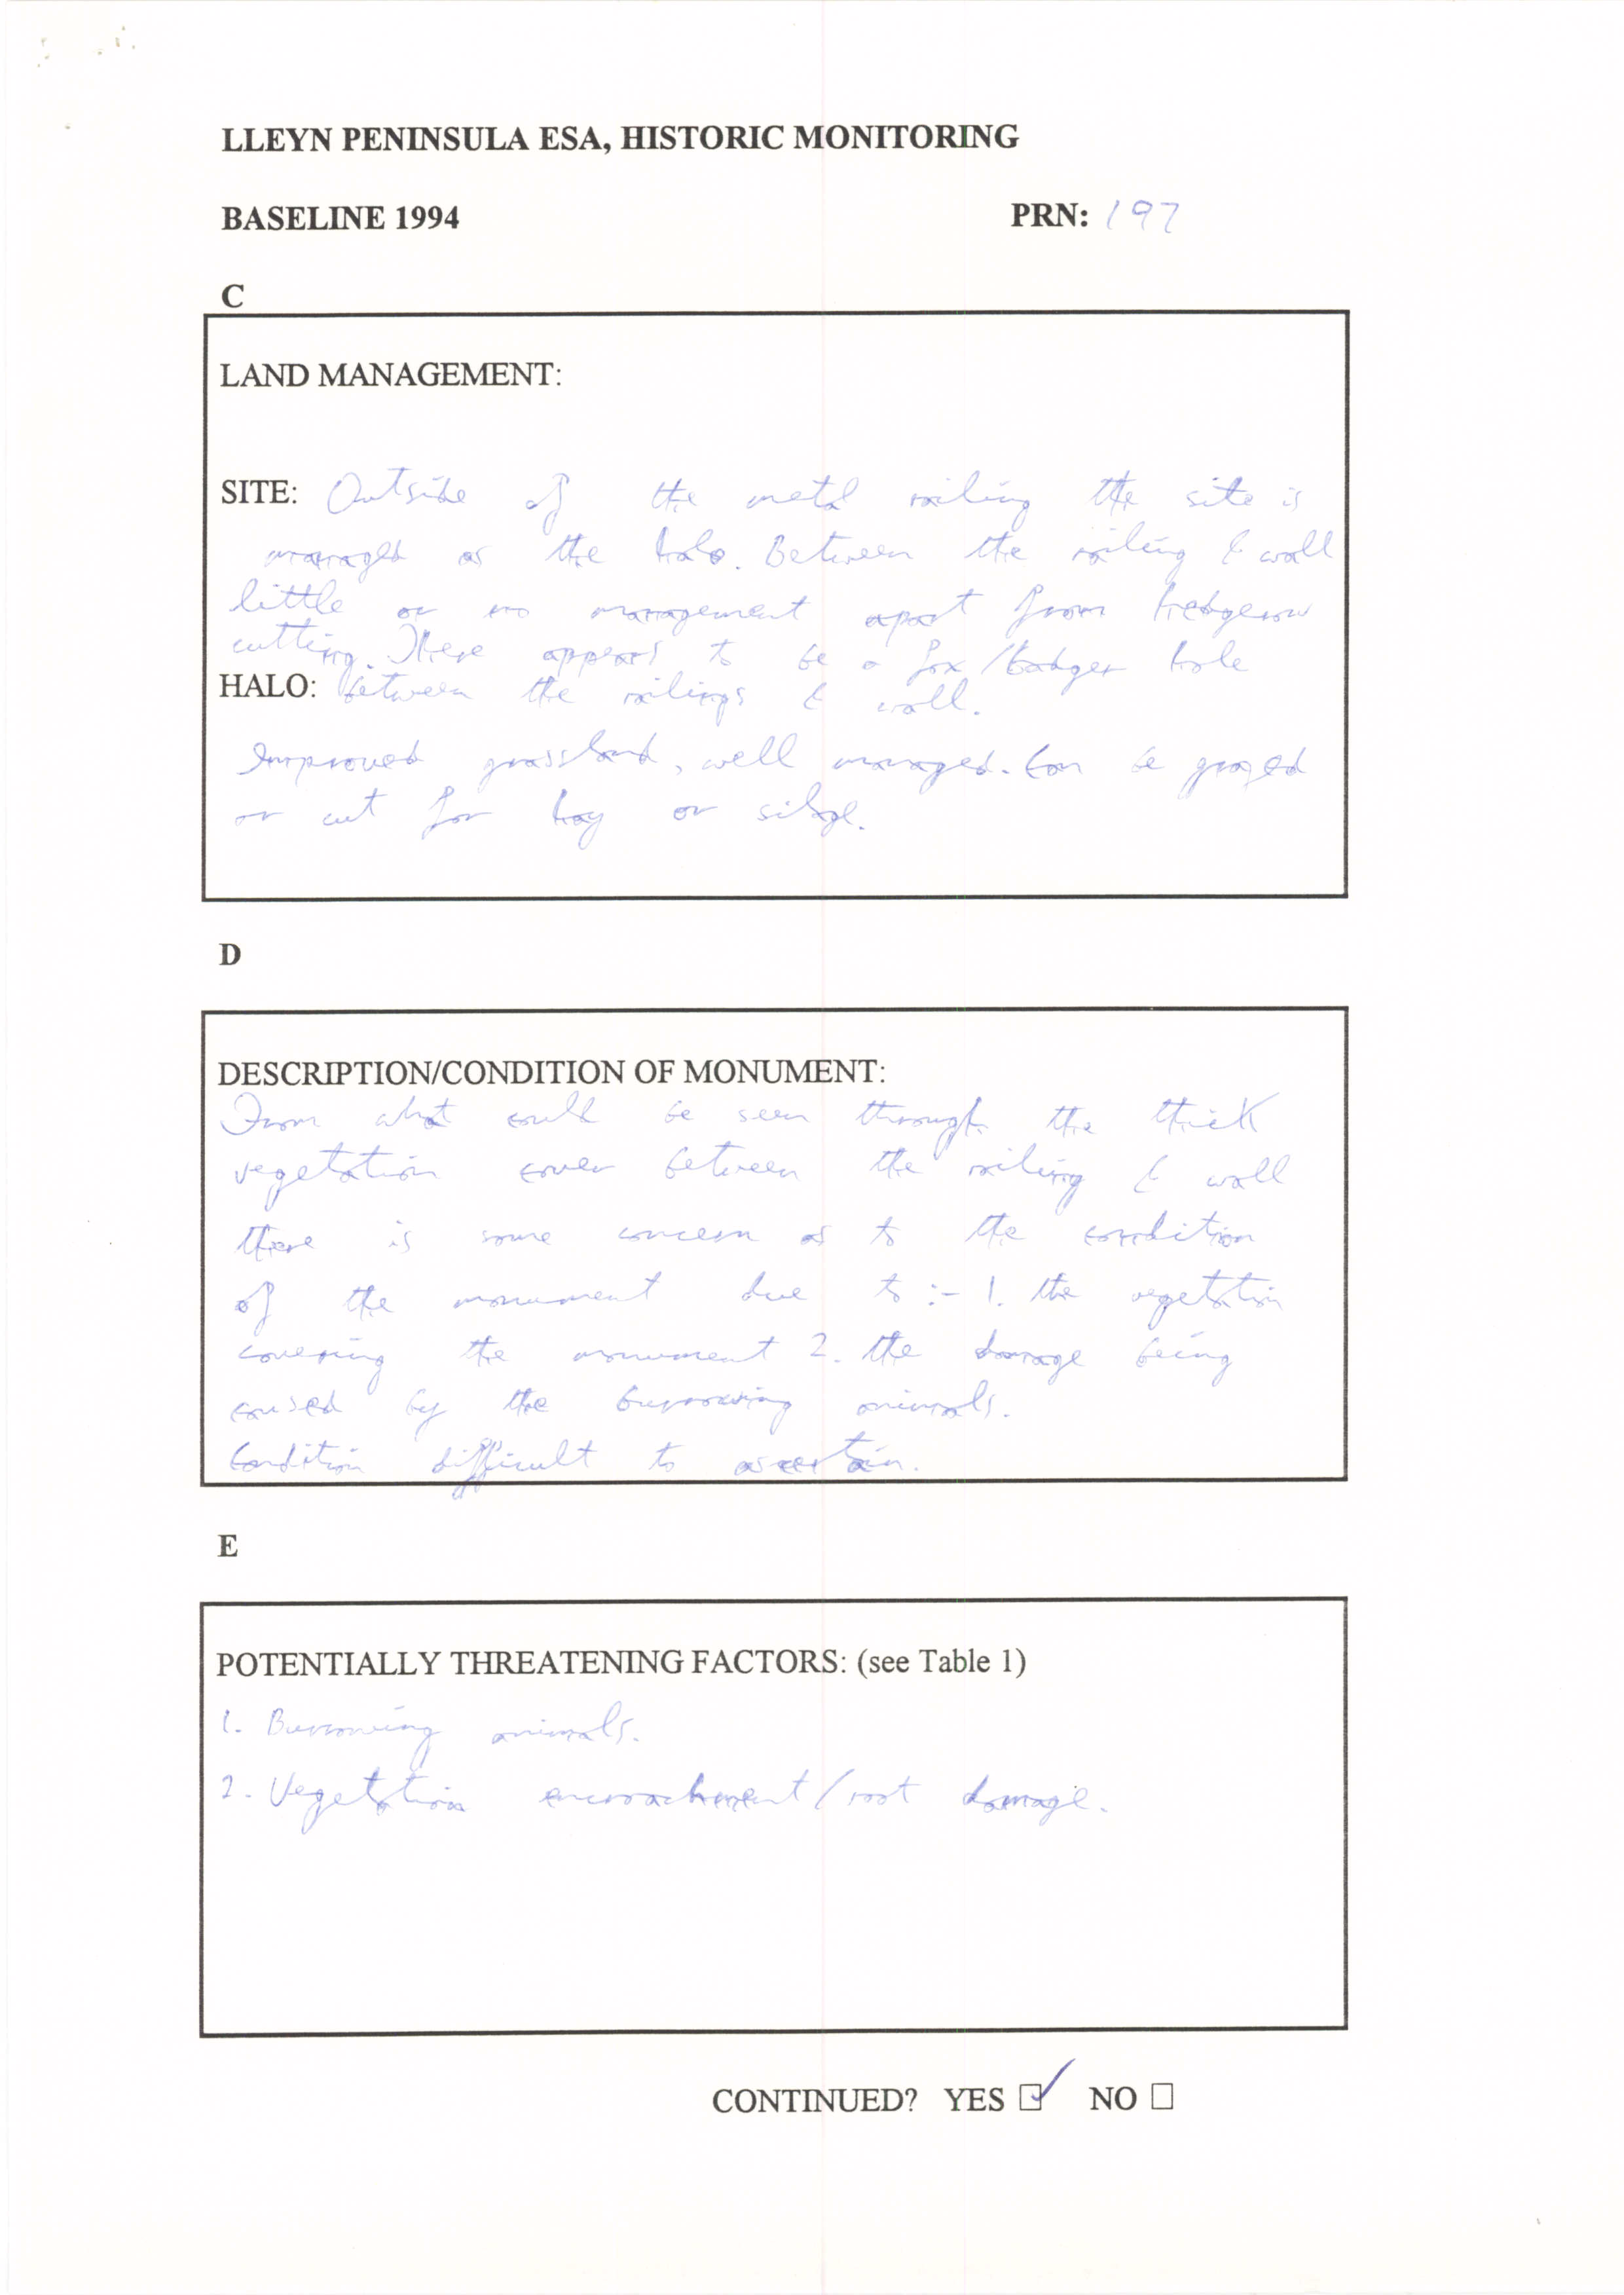 LLEYN PENINSULA ESA, HISTORIC MONITORING
BASELINE 1994 PRN: 197
C
LAND MANAGEMENT:
SITE: Outside of the metal railing the site is
managed as the halo. Between the railing & wall
little or no management apart from hedgerow
cutting. There appears to be a fox/badger hole
HALO: between the railings & wall.
Improved grassland, well managed. Can be grazed
or cut for hay or silage.
D
DESCRIPTION/CONDITION OF MONUMENT:
From what could be seen through the thick
vegetation cover between the railing & wall
there is some concern as to the condition
of the monument due to :- 1. the vegetation
covering the monument 2. the damage being
caused by the burrowing animals.
Condition difficult to ascertain.
E
POTENTIALLY THREATENING FACTORS: (see Table 1)
1. Burrowing animals.
2. Vegetation encroachment/root damage.
CONTINUED? YES ☑ NO ☐